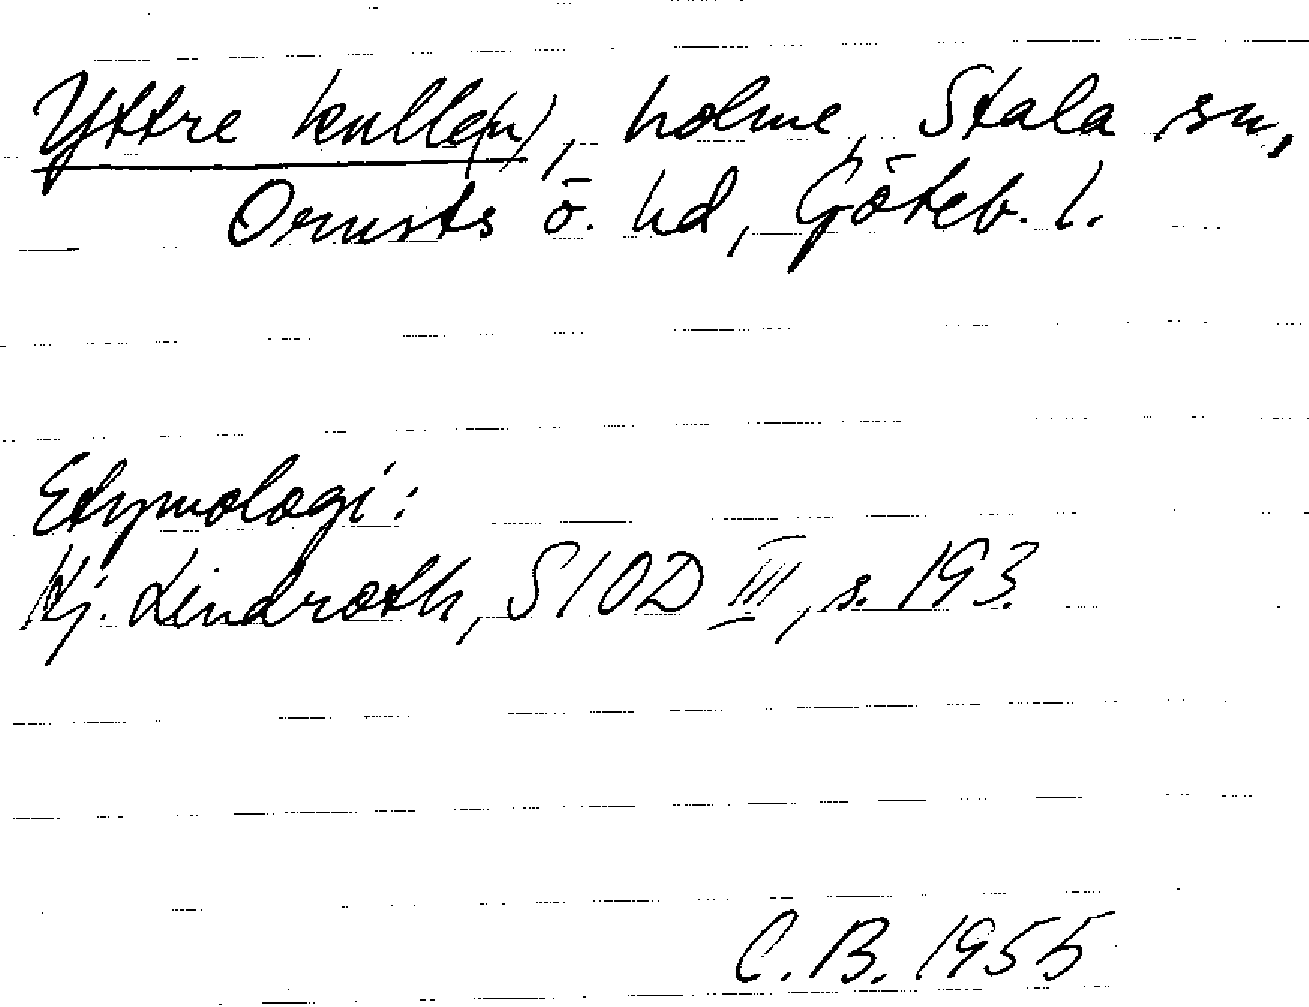 Yttre kulle(n), holme, Stala sn,
Orusts ö. hd, Göteb. l.
Etymologi:
Hj. Lindroth, SIOD III, s. 193.
C. B. 1955